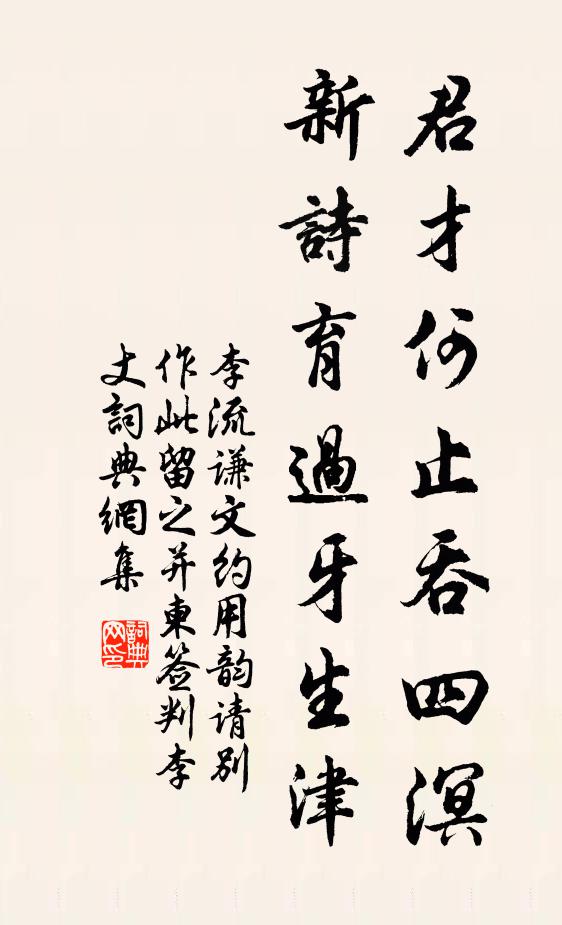 君才何止吞四溟
新詩育過牙生津
李流謙文約用韵请别
作此留之并東签判李
丈詞典網集
詞典
网印